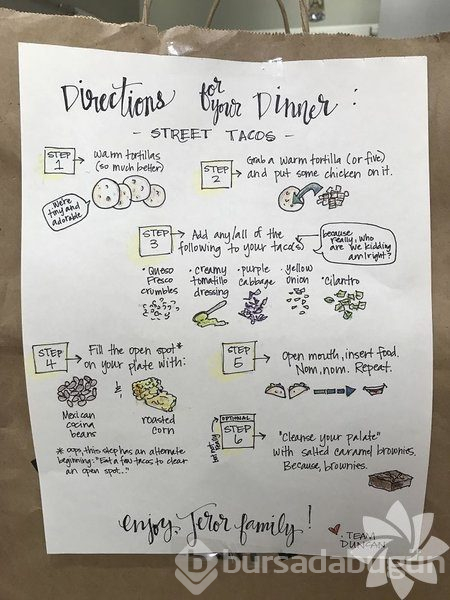 Directions for your Dinner:
- STREET TACOS -
STEP 1
Warm tortillas
(so much better)
We're
tiny and
adorable
STEP 2
Grab a warm tortilla (or five)
and put some chicken on it.
STEP 3
Add any/all of the
following to your taco(s)
because
really, who
are we kidding
am I right?
• Queso
Fresco
crumbles
• creamy
tomatillo
dressing
• purple
cabbage
• yellow
onion
• Cilantro
STEP 4
Fill the open spot*
on your plate with:
Mexican
cocina
beans
&
roasted
corn
* oops, this step has an alternate
beginning: "Eat a few tacos to clear
an open spot..."
STEP 5
Open mouth, insert food.
Nom, nom. Repeat.
OPTIONAL
but not really
STEP 6
"Cleanse your palate"
with salted caramel brownies.
Because, brownies.
enjoy, Jeror family!
TEAM
DUNCAN
bursadabugün